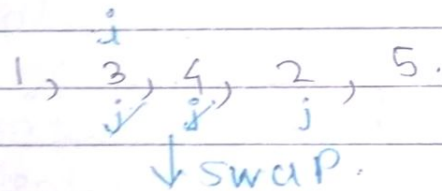 i
1, 3, 4, 2, 5.
j j j
↓ swap.